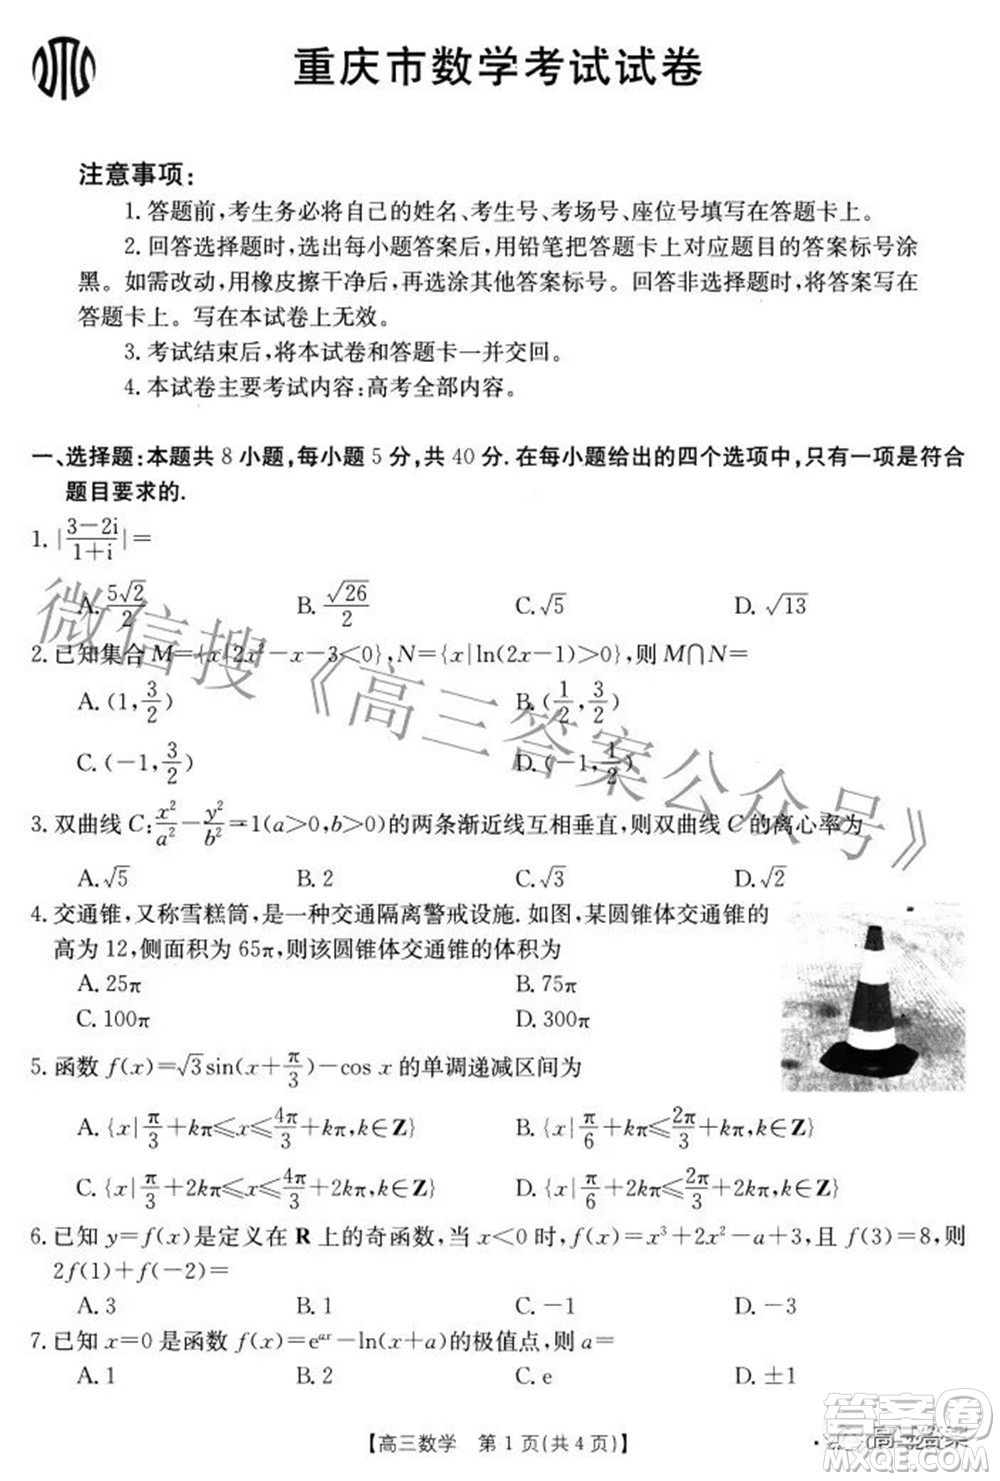 重庆市数学考试试卷
注意事项：
1. 答题前，考生务必将自己的姓名、考生号、考场号、座位号填写在答题卡上。
2. 回答选择题时，选出每小题答案后，用铅笔把答题卡上对应题目的答案标号涂
黑。如需改动，用橡皮擦干净后，再选涂其他答案标号。回答非选择题时，将答案写在
答题卡上。写在本试卷上无效。
3. 考试结束后，将本试卷和答题卡一并交回。
4. 本试卷主要考试内容：高考全部内容。
一、选择题：本题共 8 小题，每小题 5 分，共 40 分. 在每小题给出的四个选项中，只有一项是符合
题目要求的.
1. |(3-2i)/(1+i)|=
A. 5√2/2 B. √26/2 C. √5 D. √13
2. 已知集合 M={x|2x²-x-3<0}, N={x|ln(2x-1)>0}, 则 M∩N=
A. (1, 3/2) B. (1/2, 3/2)
C. (-1, 3/2) D. (-1, 1/2)
3. 双曲线 C: x²/a² - y²/b² =1(a>0,b>0)的两条渐近线互相垂直，则双曲线 C 的离心率为
A. √5 B. 2 C. √3 D. √2
4. 交通锥，又称雪糕筒，是一种交通隔离警戒设施. 如图，某圆锥体交通锥的
高为 12，侧面积为 65π，则该圆锥体交通锥的体积为
A. 25π B. 75π
C. 100π D. 300π
5. 函数 f(x)=√3sin(x+π/3)-cos x 的单调递减区间为
A. {x|π/3+kπ≤x≤4π/3+kπ,k∈Z} B. {x|π/6+kπ≤2π/3+kπ,k∈Z}
C. {x|π/3+2kπ≤x≤4π/3+2kπ,k∈Z} D. {x|π/6+2kπ≤2π/3+2kπ,k∈Z}
6. 已知 y=f(x)是定义在 R 上的奇函数，当 x<0 时，f(x)=x³+2x²-a+3，且 f(3)=8，则
2f(1)+f(-2)=
A. 3 B. 1 C. -1 D. -3
7. 已知 x=0 是函数 f(x)=e^{ax}-ln(x+a)的极值点，则 a=
A. 1 B. 2 C. e D. ±1
【高三数学 第 1 页(共 4 页)】
微信搜《高三答案公众号》
答案圈